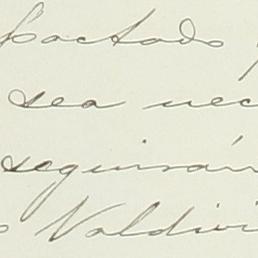 pactado
sea nec
seguirán
Valdivi